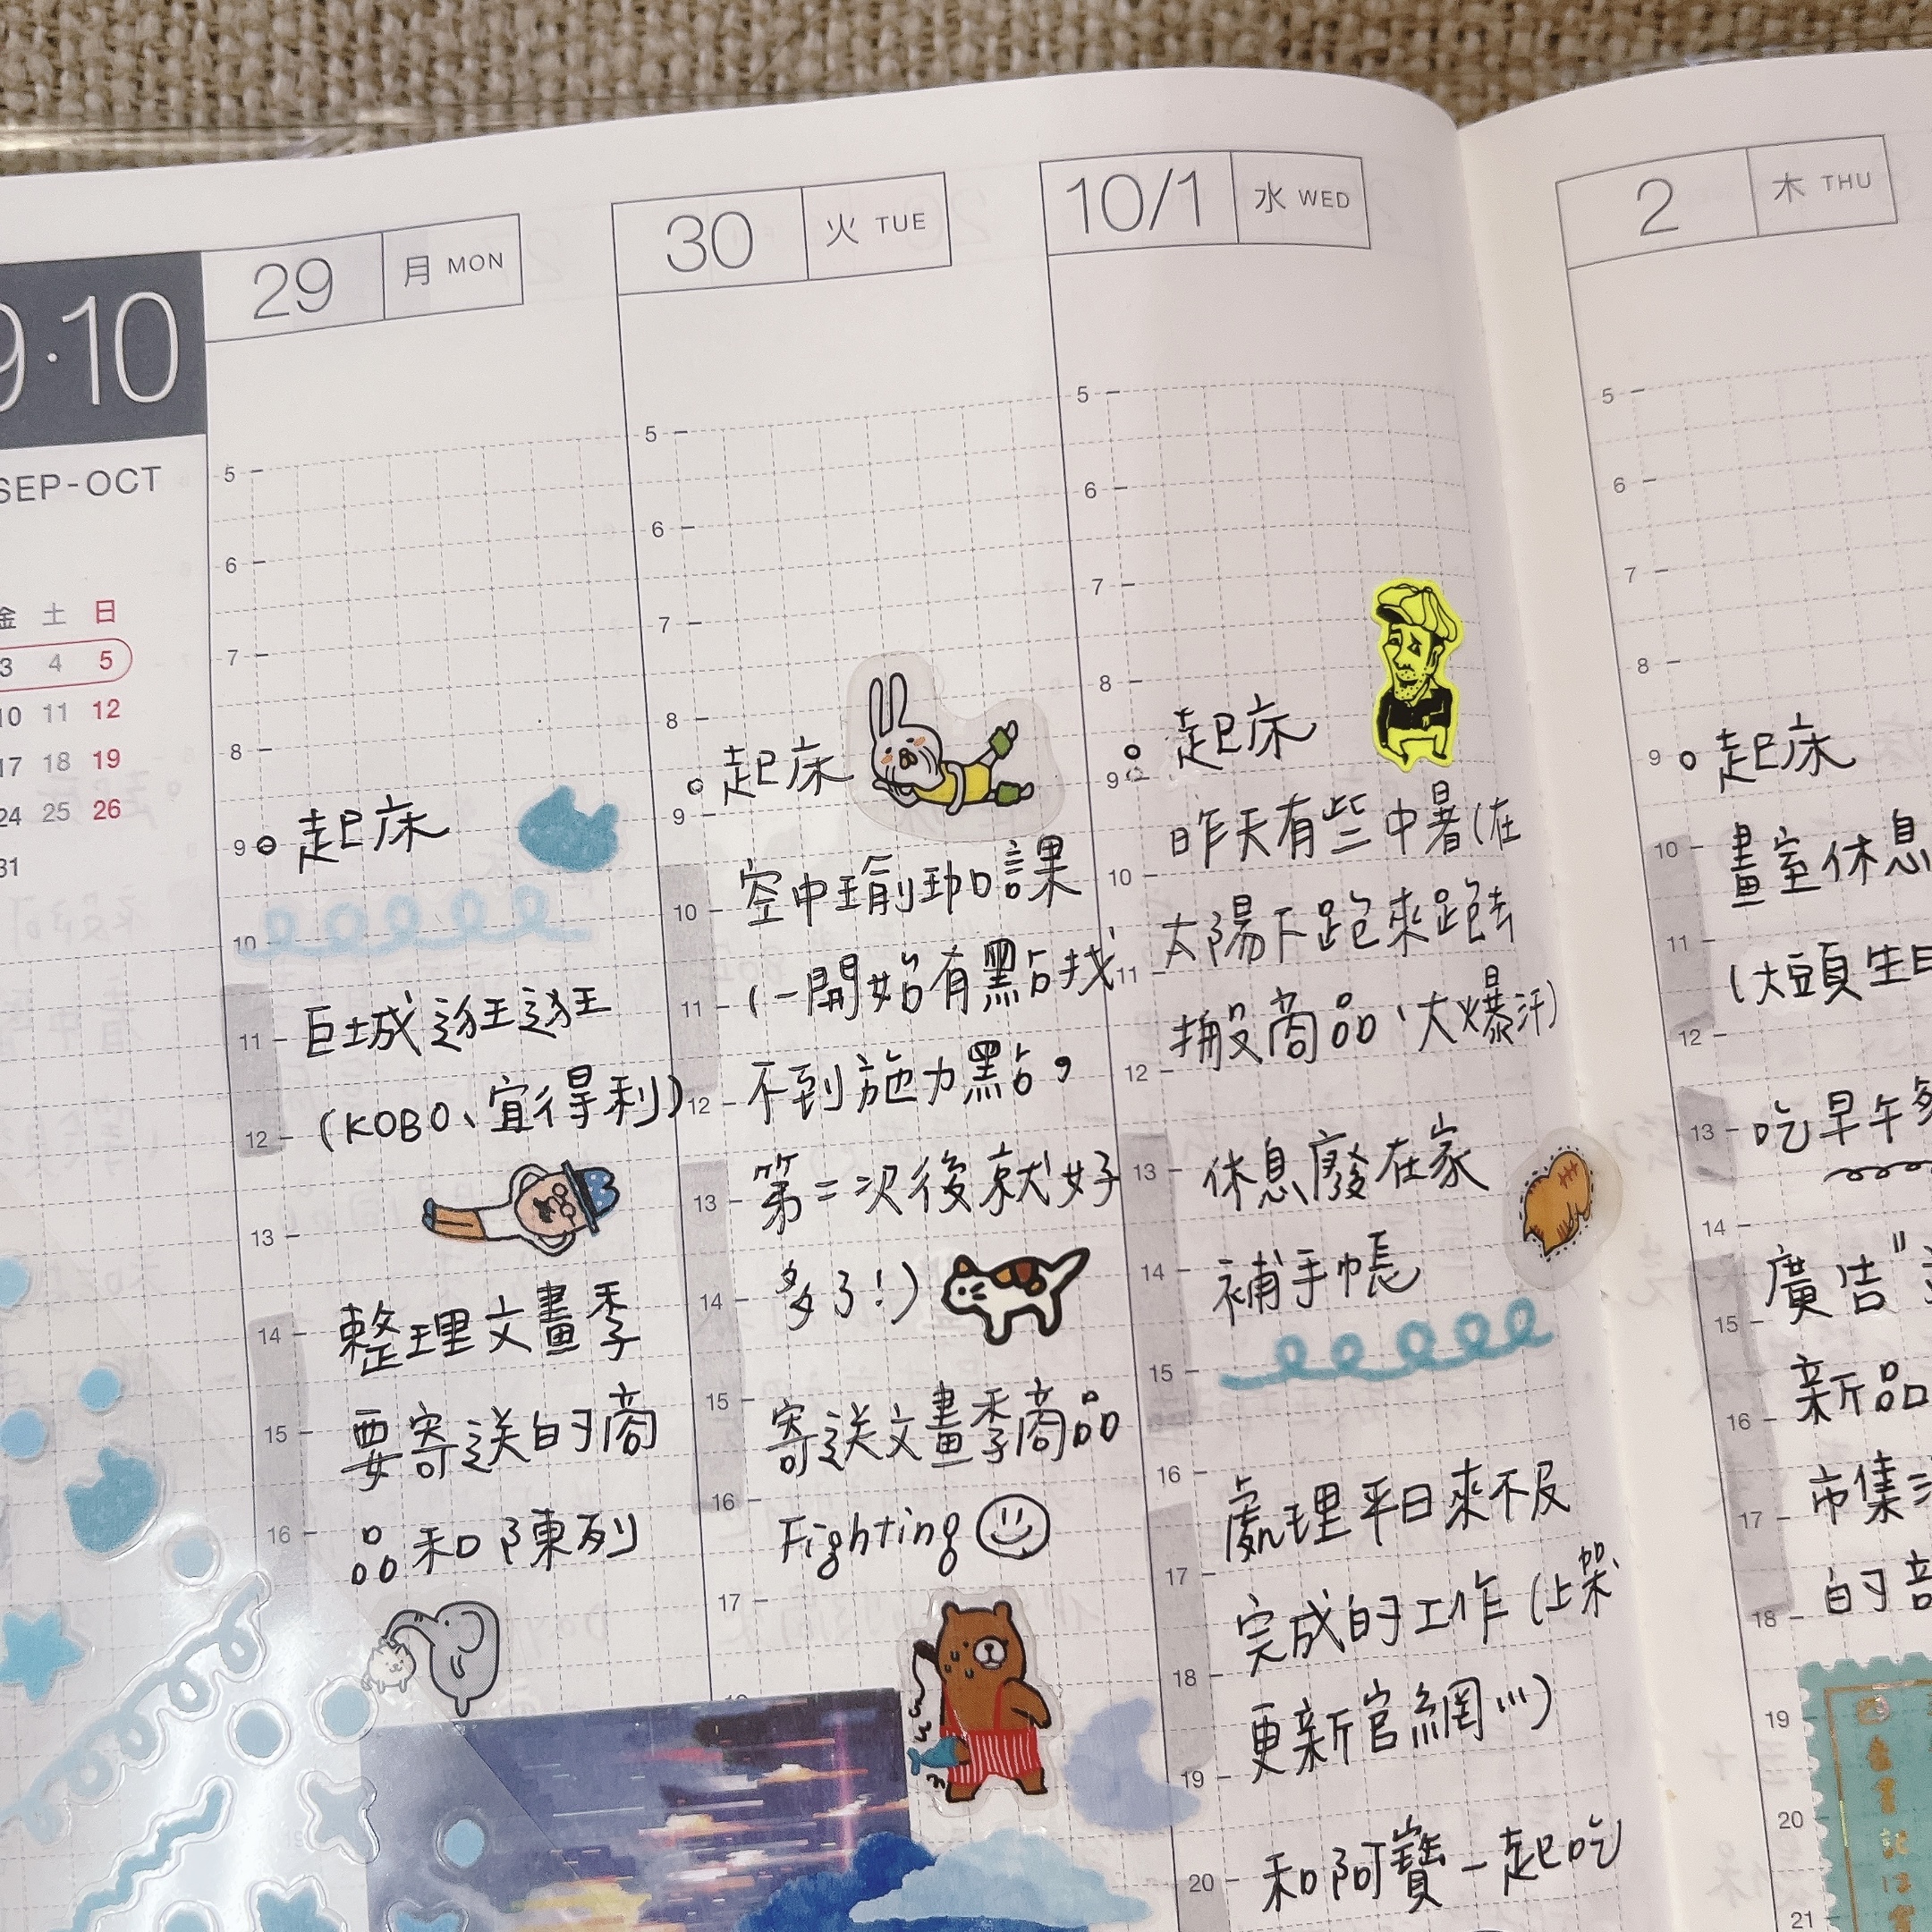 9·10
SEP-OCT
金 土 日
3 4 5
10 11 12
17 18 19
24 25 26
31
29 月 MON
5
6
7
8
9 起床
10
巨城逛逛
11
(KOBO、宜得利)
12
13
整理文畫季
14
要寄送的商
15
品和陳列
16
30 火 TUE
5
6
7
8
起床
9
空中瑜珈課
10
(一開始有點找
11
不到施力點,
12
第二次後就好
13
多了!)
14
寄送文畫季商品
15
16
Fighting
17
10/1 水 WED
5
6
7
8
起床
9
昨天有些中暑(在
10
太陽下跑來跑去
11
搬商品、大爆汗)
12
休息廢在家
13
補手帳
14
15
處理平日來不及
16
完成的工作(上架、
17
更新官網...)
18
19
和阿寶一起吃
20
2 木 THU
5
6
7
8
9 起床
10 畫室休息
11
(大頭生日
12
13 吃早午
14
廣告"
15
新品
16
市集
17
的
18
19
20
21